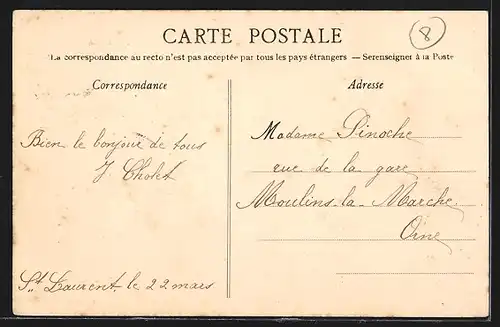 CARTE POSTALE
8
La correspondance au recto n'est pas acceptée par tous les pays étrangers — Se renseigner à la Poste
Correspondance
Adresse
Bien le bonjour de tous
J Cholet
St Laurent le 22 mars
Madame Pinoche
rue de la gare
Moulins-la-Marche
Orne